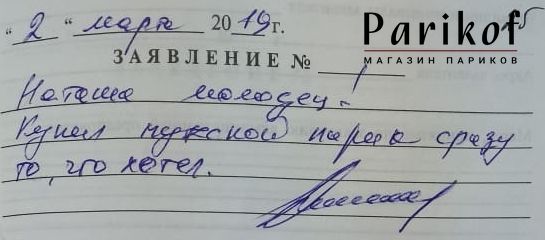 "2" марта 2019 г.
Parikof
МАГАЗИН ПАРИКОВ
ЗАЯВЛЕНИЕ №
Наташа молодец.
Купил мужской парик сразу
то, что хотел.